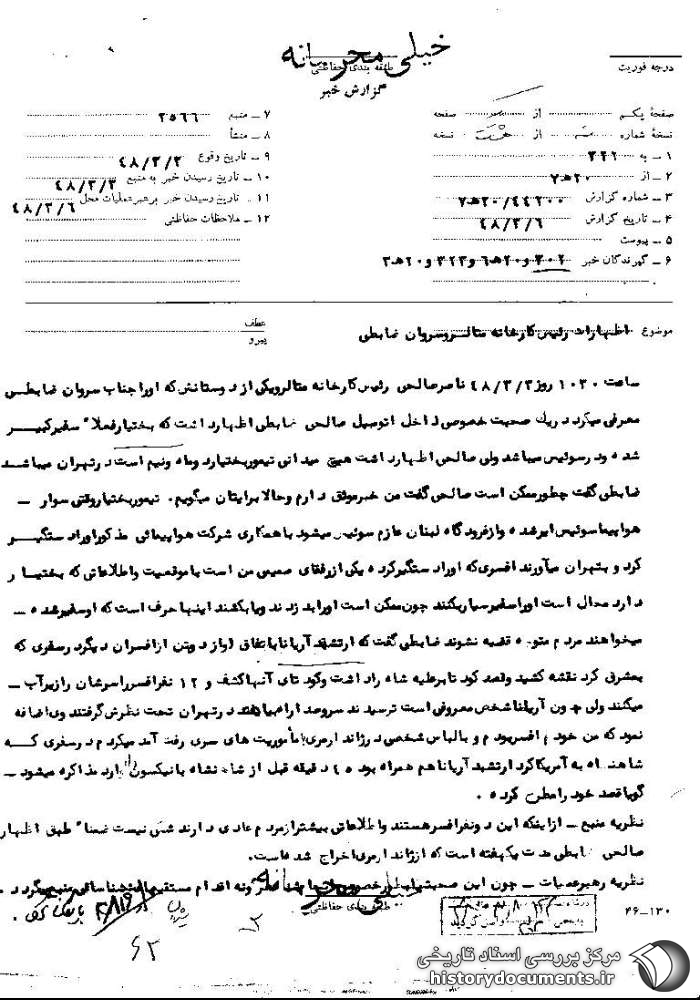 خیلی محرمانه
طبقه بندی حفاظتی
درجه فوریت
گزارش خبر
صفحهٔ یکم از صفحه
نسخهٔ شماره از نسخه
۱ – به ۳۲۲
۲ – از ۲۰هـ۷
۳ – شماره گزارش ۲۰/۴۴۲۰۰هـ۷
۴ – تاریخ گزارش ۴۸/۳/۶
۵ – پیوست
۶ – گیرندگان خبر ۳۰۲ و۲۰هـ۶ و۳۲۳ و۲۰هـ۳
۷ – منبع ۲۵۶۶
۸ – منشأ
۹ – تاریخ وقوع ۴۸/۳/۳
۱۰ – تاریخ رسیدن خبر به منبع ۴۸/۳/۳
۱۱ – تاریخ رسیدن خبر برهبرعملیات محل ۴۸/۳/۶
۱۲ – ملاحظات حفاظتی
موضوع اظهارات رئیس کارخانه متالروسروان ضابطی
عطف
پیرو
ساعت ۱۰۳۰ روز ۴۸/۳/۳ ناصرصالحی رئیس کارخانه متالرویکی از دوستانش که اوراجناب سروان ضابطی
معرفی میکرد دریک صحبت خصوصی داخل اتومبیل صالحی ضابطی اظهارداشت که بختیارفعلا" سفیرکبیر
شده ودرسوئیس میباشد ولی صالحی اظهارداشت هیچ میدانی تیموربختیاردوماه ونیم است درتهران میباشد
ضابطی گفت چطورممکن است صالحی گفت من خبرموثق دارم وحالا برایتان میگویم. تیموربختیاروقتی سوار –
هواپیماسوئیس ایرشده وازفرودگاه لبنان عازم سوئیس میشود باهمکاری شرکت هواپیمائی مذکوراورادستگیر
کرد وبتهران میآورند افسری که اورادستگیرکرده یکی ازرفقای صمیمی من است باموقعیت واطلاعاتی که بختیار
دارد محال است اوراسفیرسیاریکنند چون ممکن است اورابدزدند ویابکشند اینهاحرف است که اوسفیرشده –
میخواهند مردم متوجه قضیه نشوند ضابطی گفت که ارتشبد آریانا باتفاق دوتن ازافسران دیگردرسفری که
بمشرق کرد نقشه کشید وقصد کودتابرعلیه شاه راداشت وکودتای آنهاکشف و ۱۲ نفرافسرراسرشان رازیرآب –
میکنند ولی چون آریاناشخص معروفی است ترسیدند سروصدا راه بیافتد درتهران تحت نظرش گرفتند وی اضافه
نمود که من خودم افسربودم و بالباس شخصی درژاندارمری بامأموریت های سری رفت آمد میکردم درسفری که
شاهنشاه به آمریکاکرد ارتشبد آریاناهم همراه بوده ۴۵ دقیقه قبل از شاهنشاه بانیکسون وارد مذاکره میشود –
گویاقصد خود راعملی کرده .
نظریه منبع – ازاینکه این دونفرافسرهستند واطلاعاتی بیشترازمردم عادی دارند شکی نیست ضمنا" طبق اظهار
صالحی ضابطی مدت یکهفته است که ازژاندارمری اخراج شده است.
نظریه رهبرعملیات – چون این صحبتها بطورخصوصی هرگونه اقدام مستقیم شناسائی منبع میگردد .
خیلی محرمانه
طبقه بندی حفاظتی
۴۶-۱۳۰
۲
۶۲
مرکز بررسی اسناد تاریخی
historydocuments.ir